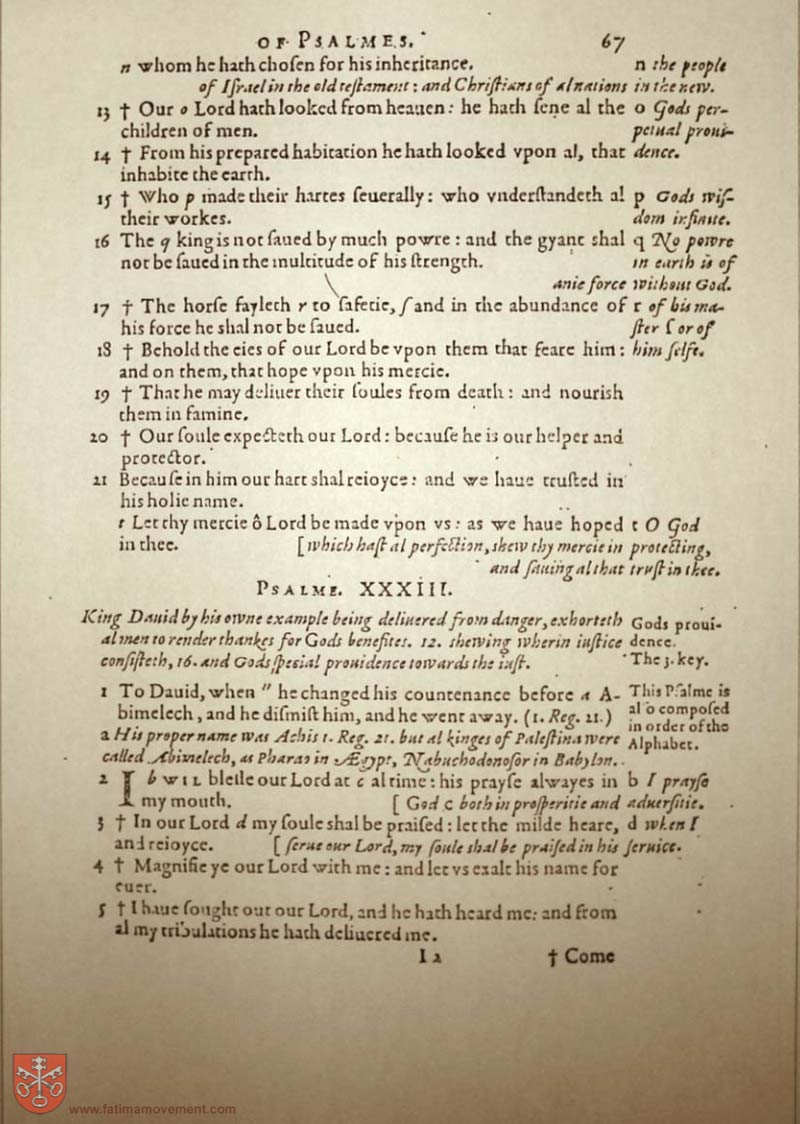 OF PSALMES. 67
n whom he hath choſen for his inheritance. n the people
of Iſrael in the old teſtament : and Chriſtians of al nations in the new.
13 † Our o Lord hath looked from heauen : he hath ſene al the o Gods per-
children of men. petual proui-
14 † From his prepared habitation he hath looked vpon al, that dence.
inhabite the earth.
15 † Who p made their hartes ſeuerally : who vnderſtandeth al p Gods wiſ-
their workes. dom infinite.
16 The q king is not ſaued by much powre : and the gyant shal q No powre
not be ſaued in the multitude of his ſtrength. in earth is of
anie force without God.
17 † The horſe fayleth r to ſafetie, ſ and in the abundance of r of his ma-
his force he shal not be ſaued. ſter ſ or of
18 † Behold the eies of our Lord be vpon them that feare him : him ſelfe.
and on them, that hope vpon his mercie.
19 † That he may deliuer their ſoules from death : and nourish
them in famine.
20 † Our ſoule expecteth our Lord : becauſe he is our helper and
protector.
21 Becauſe in him our hart shal reioyce : and we haue truſted in
his holie name.
t Let thy mercie ô Lord be made vpon vs : as we haue hoped t O God
in thee. [ which haſt al perfection, shew thy mercie in protecting,
and ſauing al that truſt in thee.
PSALME. XXXIII.
King Dauid by his owne example being deliuered from danger, exhorteth Gods proui-
al men to render thankes for Gods benefites. 12. shewing wherin iuſtice dence.
conſiſteth, 16. and Gods ſpecial prouidence towards the iuſt. The 3. key.
1 To Dauid, when " he changed his countenance before a A- This Pſalme is
bimelech, and he diſmiſt him, and he went away. (1. Reg. 21.) alſo compoſed
in order of the
a His proper name was Achis 1. Reg. 21. but al kinges of Paleſtina were Alphabet.
called Abimelech, as Pharao in Ægypt, Nabuchodonoſor in Babylon.
2 I b WIL bleſſe our Lord at c al time : his prayſe alwayes in b I prayſe
my mouth. [ God c both in proſperitie and aduerſitie.
3 † In our Lord d my ſoule shal be praiſed : let the milde heare, d when I
and reioyce. [ ſerue our Lord, my ſoule shal be praiſed in his ſeruice.
4 † Magnifie ye our Lord with me : and let vs exalt his name for
euer.
5 † I haue ſought out our Lord, and he hath heard me : and from
al my tribulations he hath deliuered me.
I 2 † Come
www.fatimamovement.com